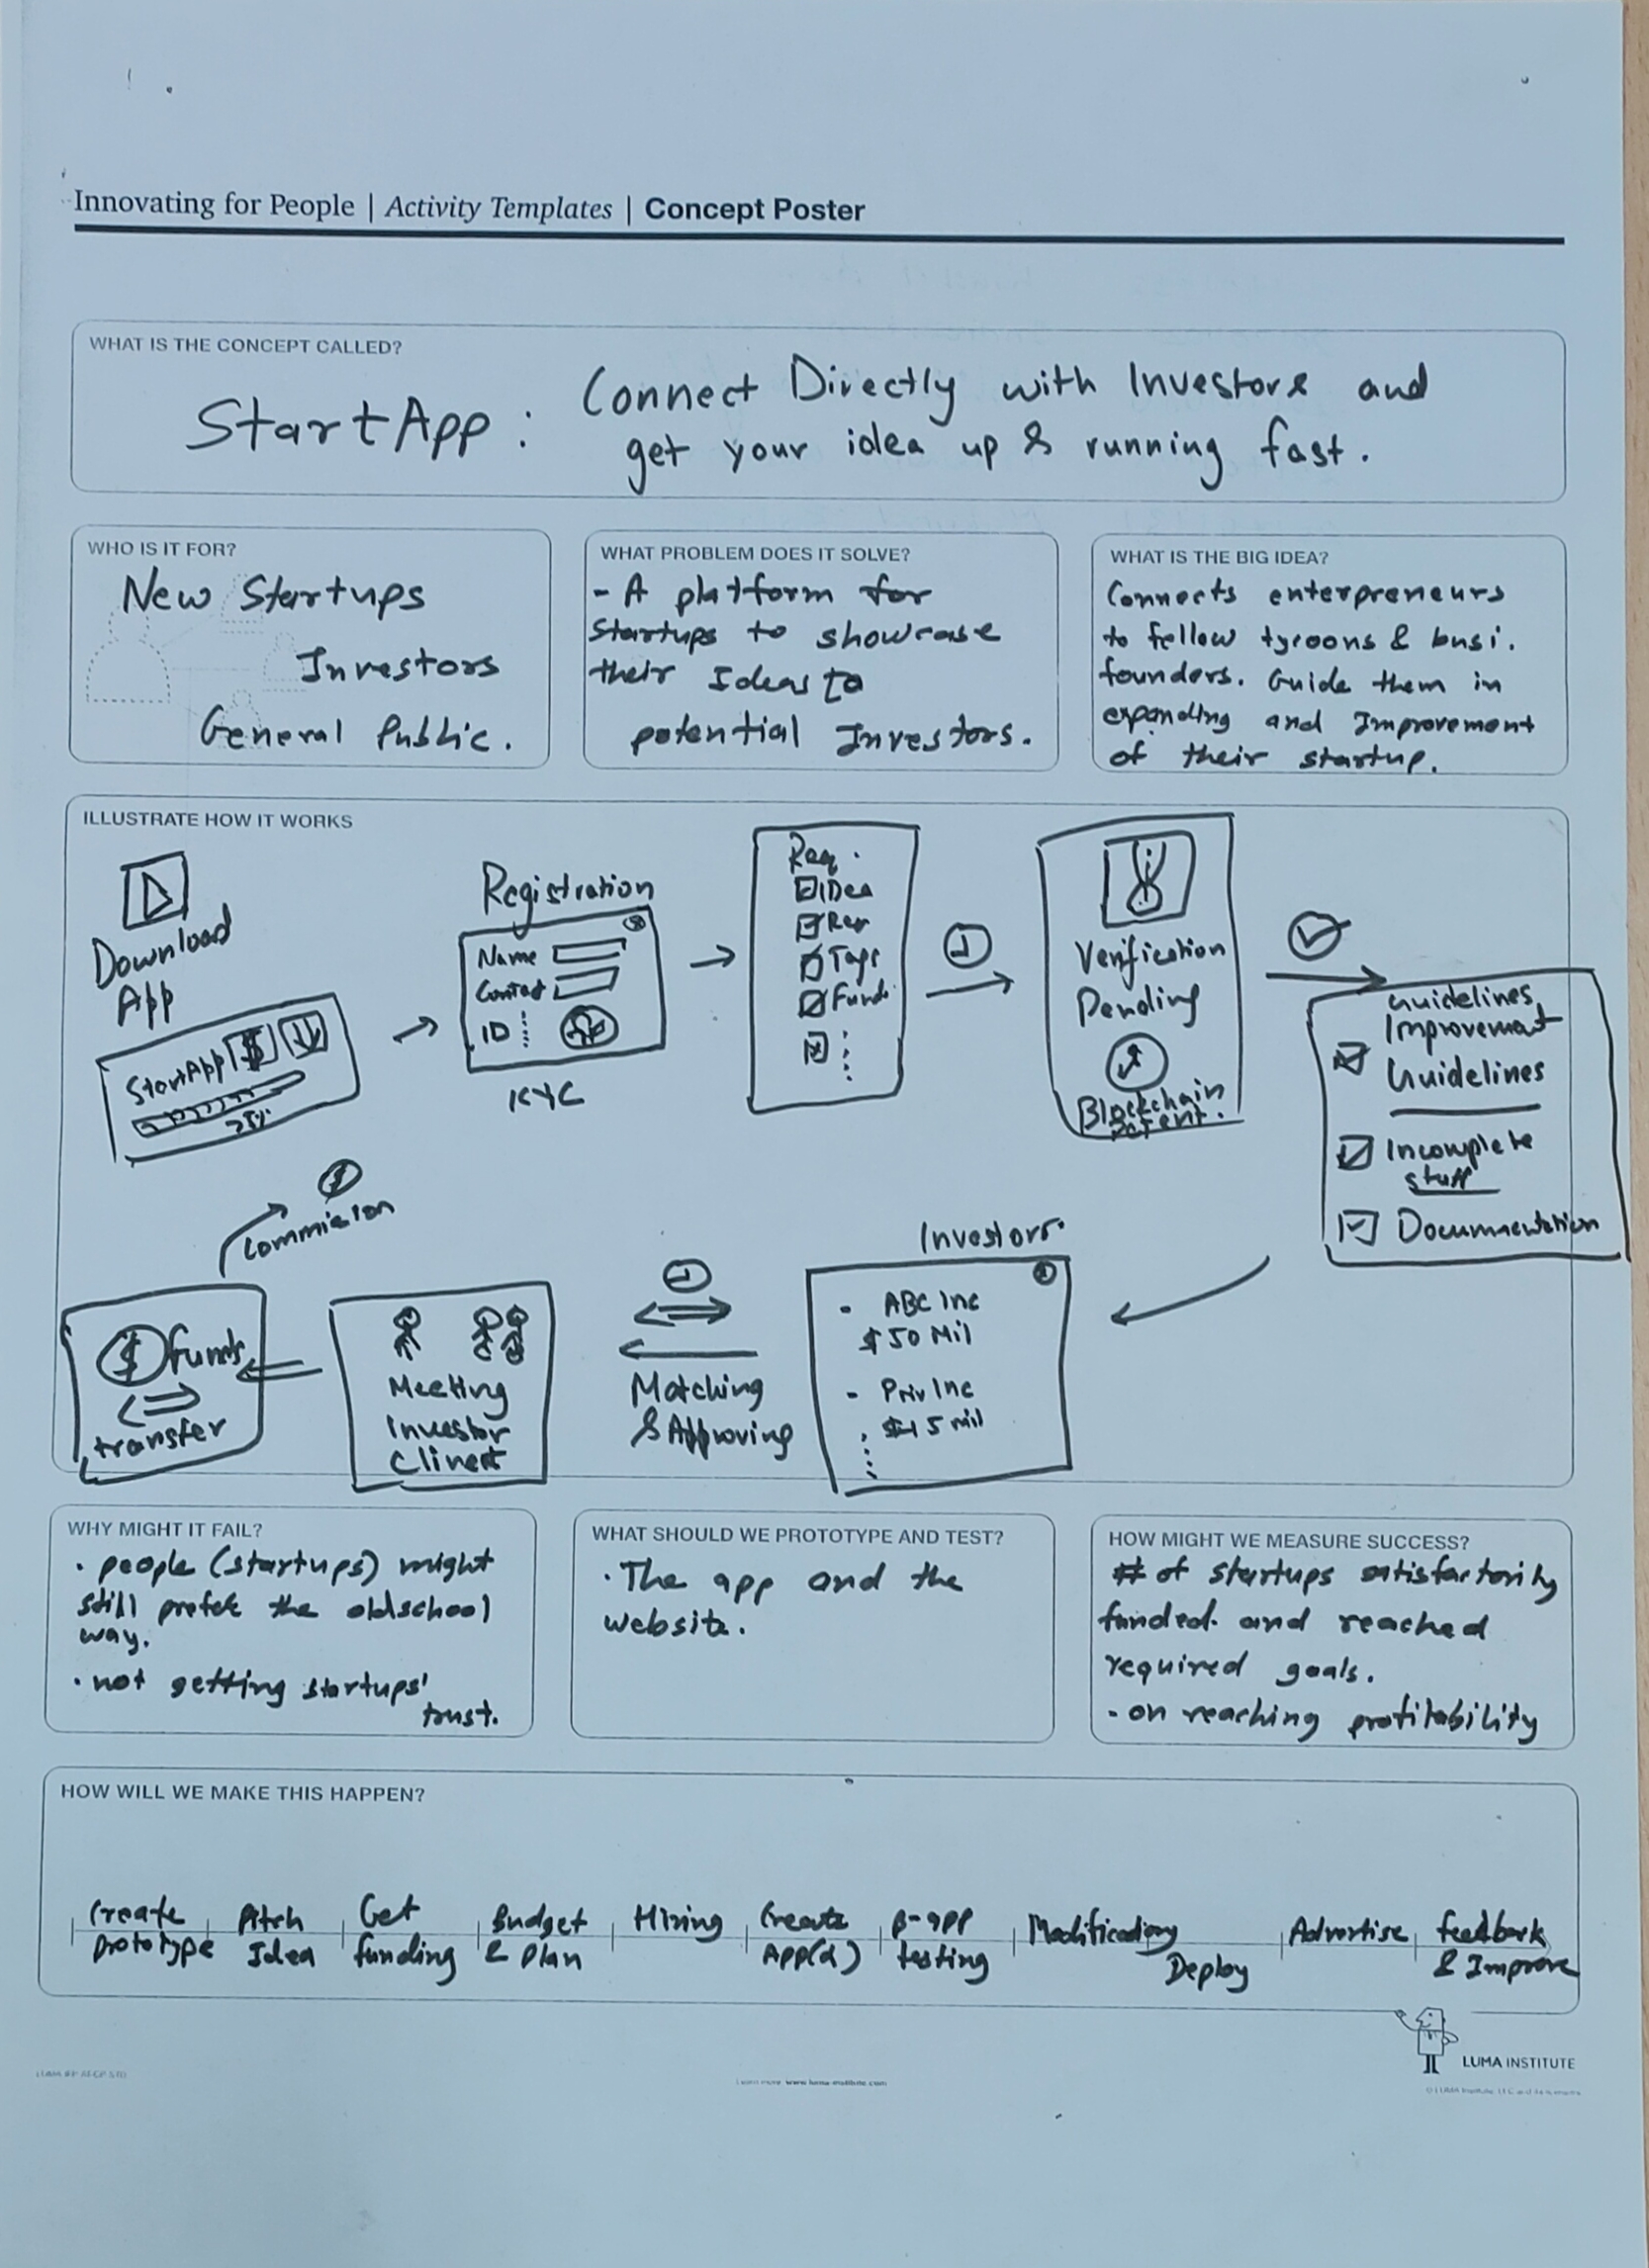 Innovating for People | Activity Templates | Concept Poster
WHAT IS THE CONCEPT CALLED?
StartApp : Connect Directly with Investors and
get your idea up & running fast.
WHO IS IT FOR?
New Startups
Investors
General Public.
WHAT PROBLEM DOES IT SOLVE?
- A platform for
startups to showcase
their Ideas to
potential Investors.
WHAT IS THE BIG IDEA?
Connects enterpreneurs
to fellow tycoons & busi.
founders. Guide them in
expanding and Improvement
of their startup.
ILLUSTRATE HOW IT WORKS
Download
App
StartApp $
75%
Registration
Name
Contact
ID
KYC
Req.
IDea
Req
Tags
Funds
Verification
Pending
Blockchain
Patent.
Guidelines,
Improvement
Guidelines
Incomplete
stuff
Documentation
Investors
- ABC Inc
$ 50 Mil
- Priv Inc
$45 mil
Matching
& Approving
Meeting
Investor
Clinet
$ funds
transfer
$
Commission
WHY MIGHT IT FAIL?
· people (startups) might
still prefer the oldschool
way.
· not getting startups'
trust.
WHAT SHOULD WE PROTOTYPE AND TEST?
· The app and the
website.
HOW MIGHT WE MEASURE SUCCESS?
# of startups satisfactorily
funded. and reached
required goals.
- on reaching profitability
HOW WILL WE MAKE THIS HAPPEN?
Create
prototype
Pitch
Idea
Get
funding
Budget
& Plan
Hiring
Create
App(α)
β-app
testing
Modification
Deploy
Advertise
feedback
& Improve
LUMA INSTITUTE
Learn more www.luma-institute.com